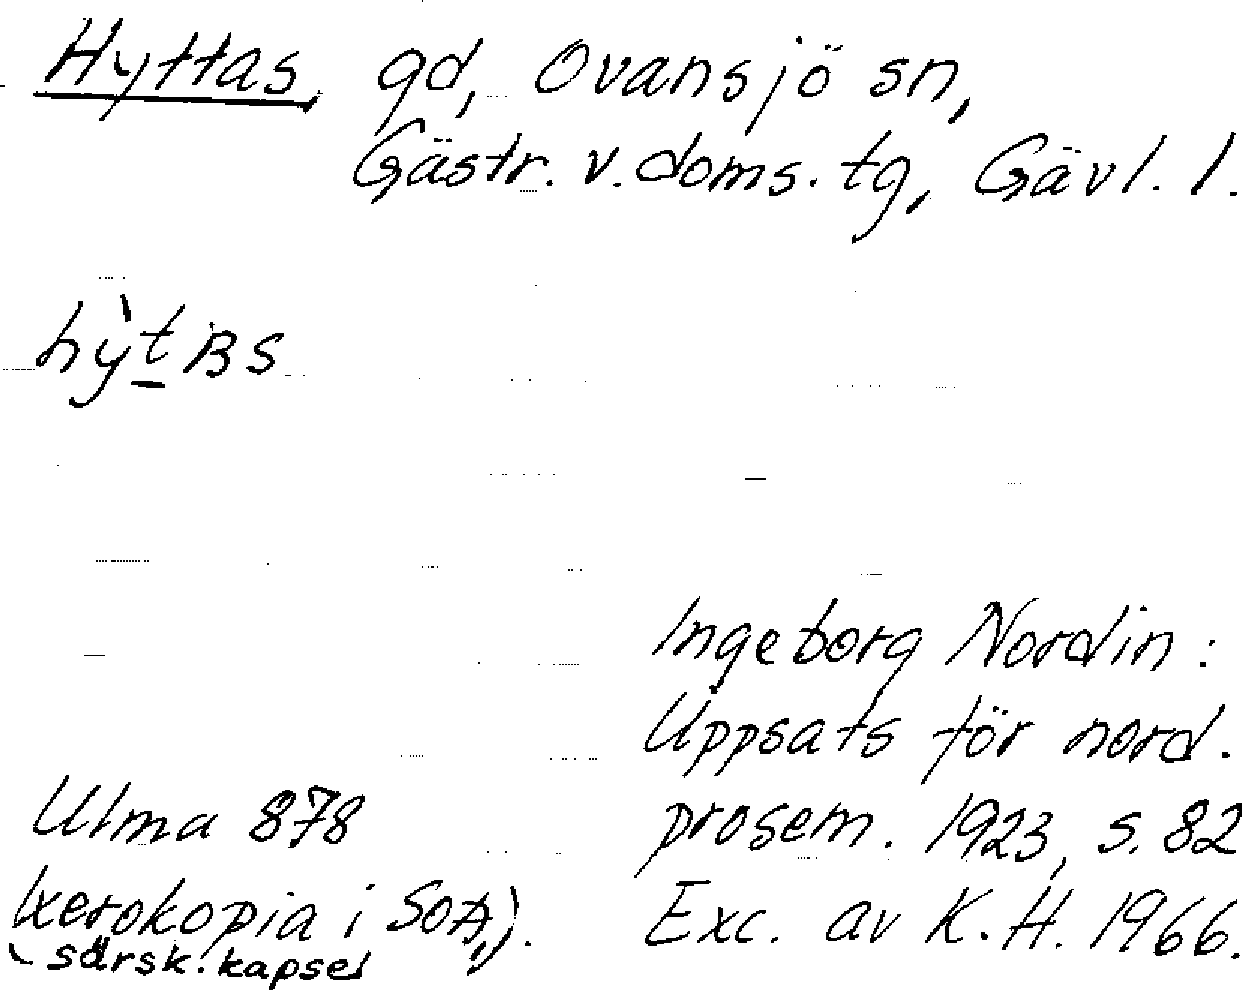 Hyttas, gd, Ovansjö sn,
Gästr. v. doms. tg, Gävl. l.
hy̆̀tʙs
Ingeborg Nordin:
Uppsats för nord.
prosem. 1923, s. 82
Exc. av K.H. 1966.
Ulma 878
(xerokopia i SOA,
särsk. kapsel).